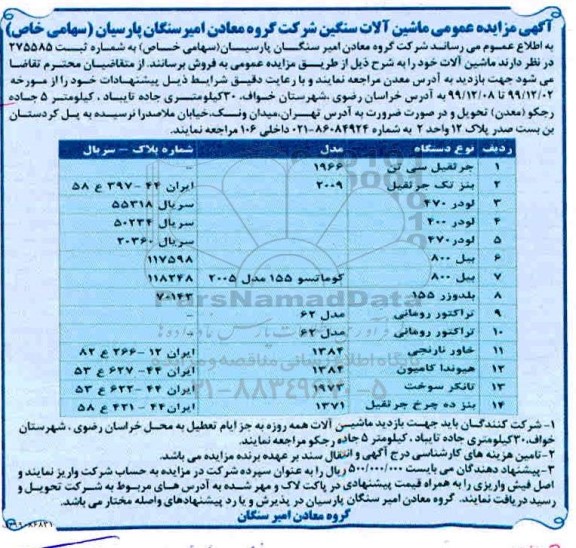 آگهی مزایده عمومی ماشین آلات سنگین شرکت گروه معادن امیر سنگان پارسیان (سهامی خاص)
به اطلاع عموم می رساند شرکت گروه معادن امیر سنگان پارسیان(سهامی خاص) به شماره ثبت ۲۷۵۵۸۵
در نظر دارند ماشین آلات خود را به شرح ذیل از طریق مزایده عمومی به فروش برسانند. از متقاضیان محترم تقاضا
می شود جهت بازدید به آدرس معدن مراجعه نمایند و با رعایت دقیق شرایط ذیل پیشنهادات خود را از مورخه
۹۹/۱۲/۰۲ تا ۹۹/۱۲/۰۸ به آدرس خراسان رضوی ،شهرستان خواف، ۳۰کیلومتری جاده تایباد ، کیلومتر ۵ جاده
رجکو (معدن) تحویل و در صورت ضرورت به آدرس تهران،میدان ونک،خیابان ملاصدرا نرسیده به پل کردستان
بن بست صدر پلاک ۱۲ واحد ۲ به شماره ۸۶۰۸۴۹۲۴-۰۲۱ داخلی ۱۰۶ مراجعه نمایند.
ردیف نوع دستگاه مدل شماره پلاک – سریال
۱ جرثقیل سی تن ۱۹۶۶ –
۲ بنز تک جرثقیل ۲۰۰۹ ایران ۴۴ -۳۹۷ ع ۵۸
۳ لودر ۴۷۰ سریال ۵۵۳۱۸
۴ لودر ۴۰۰ سریال ۵۰۲۳۴
۵ لودر ۴۷۰ سریال ۲۰۳۶۰
۶ بیل ۸۰۰ ۱۱۷۵۹۸
۷ بیل ۸۰۰ کوماتسو ۱۵۵ مدل ۲۰۰۵ ۱۱۸۲۴۸
۸ بلدوزر ۱۵۵ ۷۰۱۴۲
۹ تراکتور رومانی مدل ۶۲ –
۱۰ تراکتور رومانی مدل ۶۲ –
۱۱ خاور نارنجی ۱۳۸۴ ایران ۱۲ -۲۶۶ ع ۸۲
۱۲ هیوندا کامیون ۱۳۸۴ ایران ۴۴- ۶۲۷ ع ۵۳
۱۳ تانکر سوخت ۱۹۷۳ ایران ۴۴- ۶۲۲ ع ۵۳
۱۴ بنز ده چرخ جرثقیل ۱۳۷۱ ایران ۴۴- ۴۲۱ ع ۵۸
ParsNamadData
پایگاه اطلاع رسانی مناقصه و مزایده
۰۲۱-۸۸۳۴۹۶۷۰-۵
۱- شرکت کنندگان باید جهت بازدید ماشین آلات همه روزه به جز ایام تعطیل به محل خراسان رضوی ، شهرستان
خواف،۳۰کیلومتری جاده تایباد ، کیلومتر ۵ جاده رجکو مراجعه نمایند.
۲-تامین هزینه های کارشناسی درج آگهی و انتقال سند بر عهده برنده مزایده می باشد.
۳-پیشنهاد دهندگان می بایست ۵۰۰/۰۰۰/۰۰۰ ریال را به عنوان سپرده شرکت در مزایده به حساب شرکت واریز نمایند و
اصل فیش واریزی را به همراه قیمت پیشنهادی در پاکت لاک و مهر شده به آدرس های مربوط به شرکت تحویل و
رسید دریافت نمایند. گروه معادن امیر سنگان پارسیان در پذیرش و یا رد پیشنهادهای واصله مختار می باشد.
گروه معادن امیر سنگان